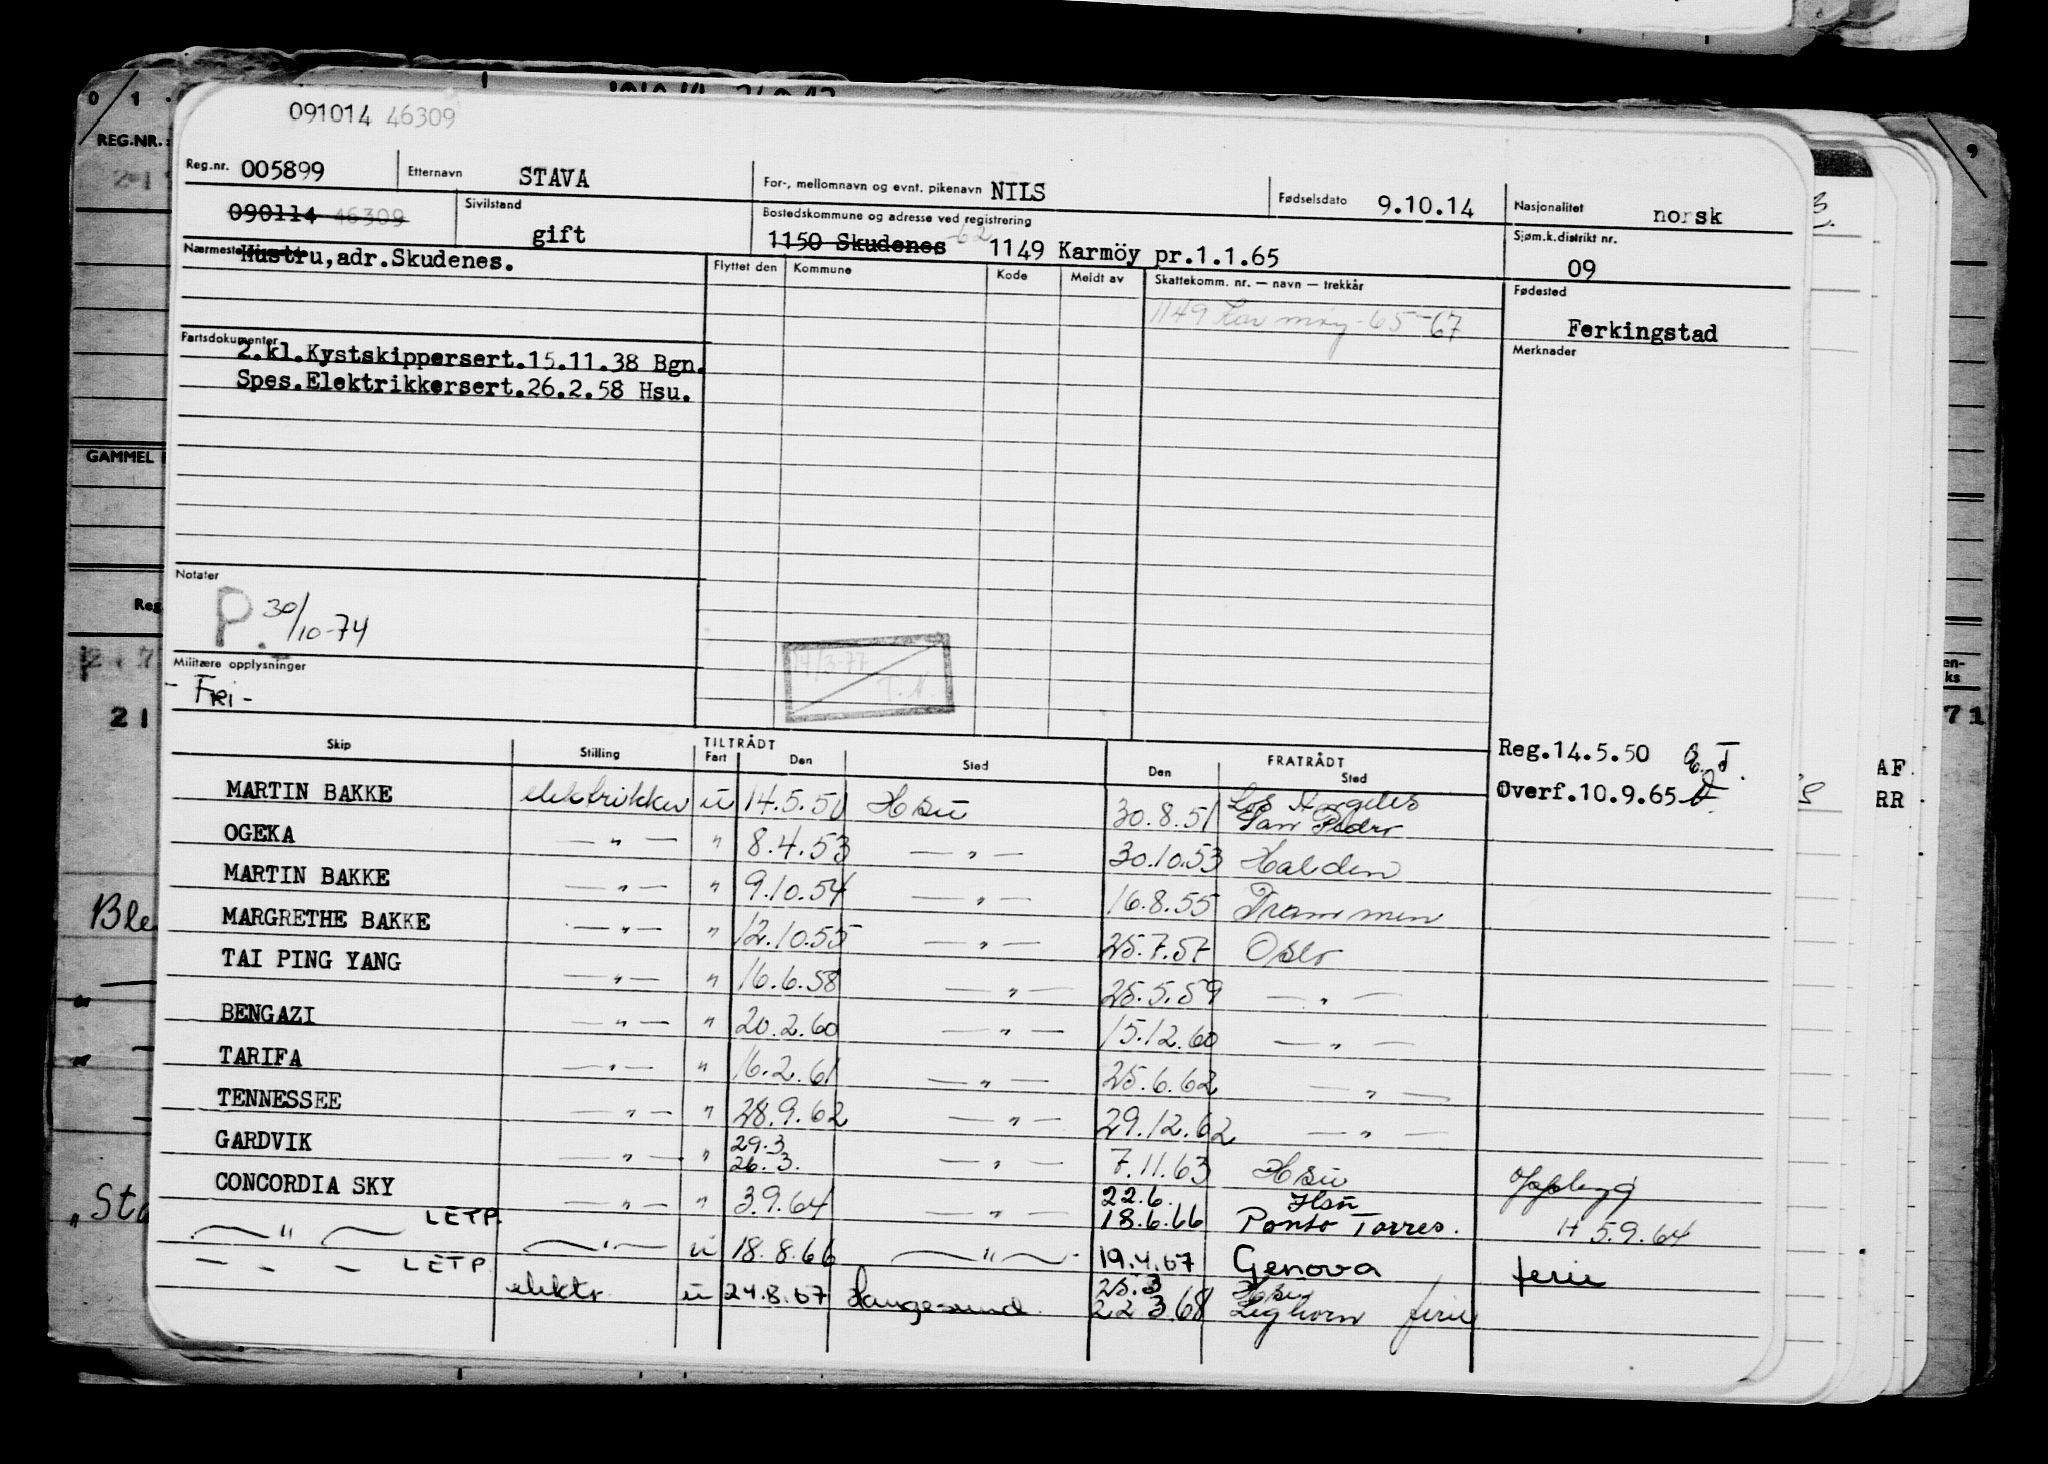 091014 46309
Reg.nr. 005899 Etternavn STAVA For-, mellomnavn og evnt. pikenavn NILS Fødselsdato 9.10.14 Nasjonalitet norsk
090114 46309 Sivilstand gift Bostedskommune og adresse ved registrering 1150 Skudenes -62 1149 Karmöy pr.1.1.65 Sjøm.k.distrikt nr. 09
Nærmeste Hustru,adr.Skudenes. Flyttet den Kommune Kode Meldt av Skattekomm. nr. — navn — trekkår Fødested
1149 Karmöy-65-67 Ferkingstad
Fartsdokumenter Merknader
2.kl.Kystskippersert.15.11.38 Bgn.
Spes.Elektrikkersert.26.2.58 Hsu.
Notater
P. 30/10-74
Militære opplysninger
- Fri -
14/3-77
T.N.
Reg.14.5.50
Overf.10.9.65
Skip Stilling TILTRÅDT Fart Den Sted Den FRATRÅDT Sted
MARTIN BAKKE elektrikker u 14.5.50 Hsu 30.8.51 Los Angeles San Pedro
OGEKA — " — " 8.4.53 — " — 30.10.53 Halden
MARTIN BAKKE — " — " 9.10.54 — " — 16.8.55 Drammen
MARGRETHE BAKKE — " — " 12.10.55 — " — 25.7.57 Oslo
TAI PING YANG — " — " 16.6.58 — " — 25.5.59 — " —
BENGAZI — " — " 20.2.60 — " — 15.12.60 — " —
TARIFA — " — " 16.2.61 — " — 25.6.62 — " —
TENNESSEE — " — " 28.9.62 — " — 29.12.62 — " —
GARDVIK — " — " 29.3 26.3. — " — 7.11.63 Hsu
CONCORDIA SKY — " — " 3.9.64 — " — 22.6. 18.6.66 Hsu Ponto Torres. H 5.9.64
— " — LETP — " — u 18.8.66 — " — 19.4.67 Genova ferie
— - — LETP elektr. u 24.8.67 Haugesund 25.3 22 3.68 Hsu Leghorn ferie
REG.NR.:
GAMMEL
Reg
21
Ble
"Sta
en-
ks
71
AF
RR